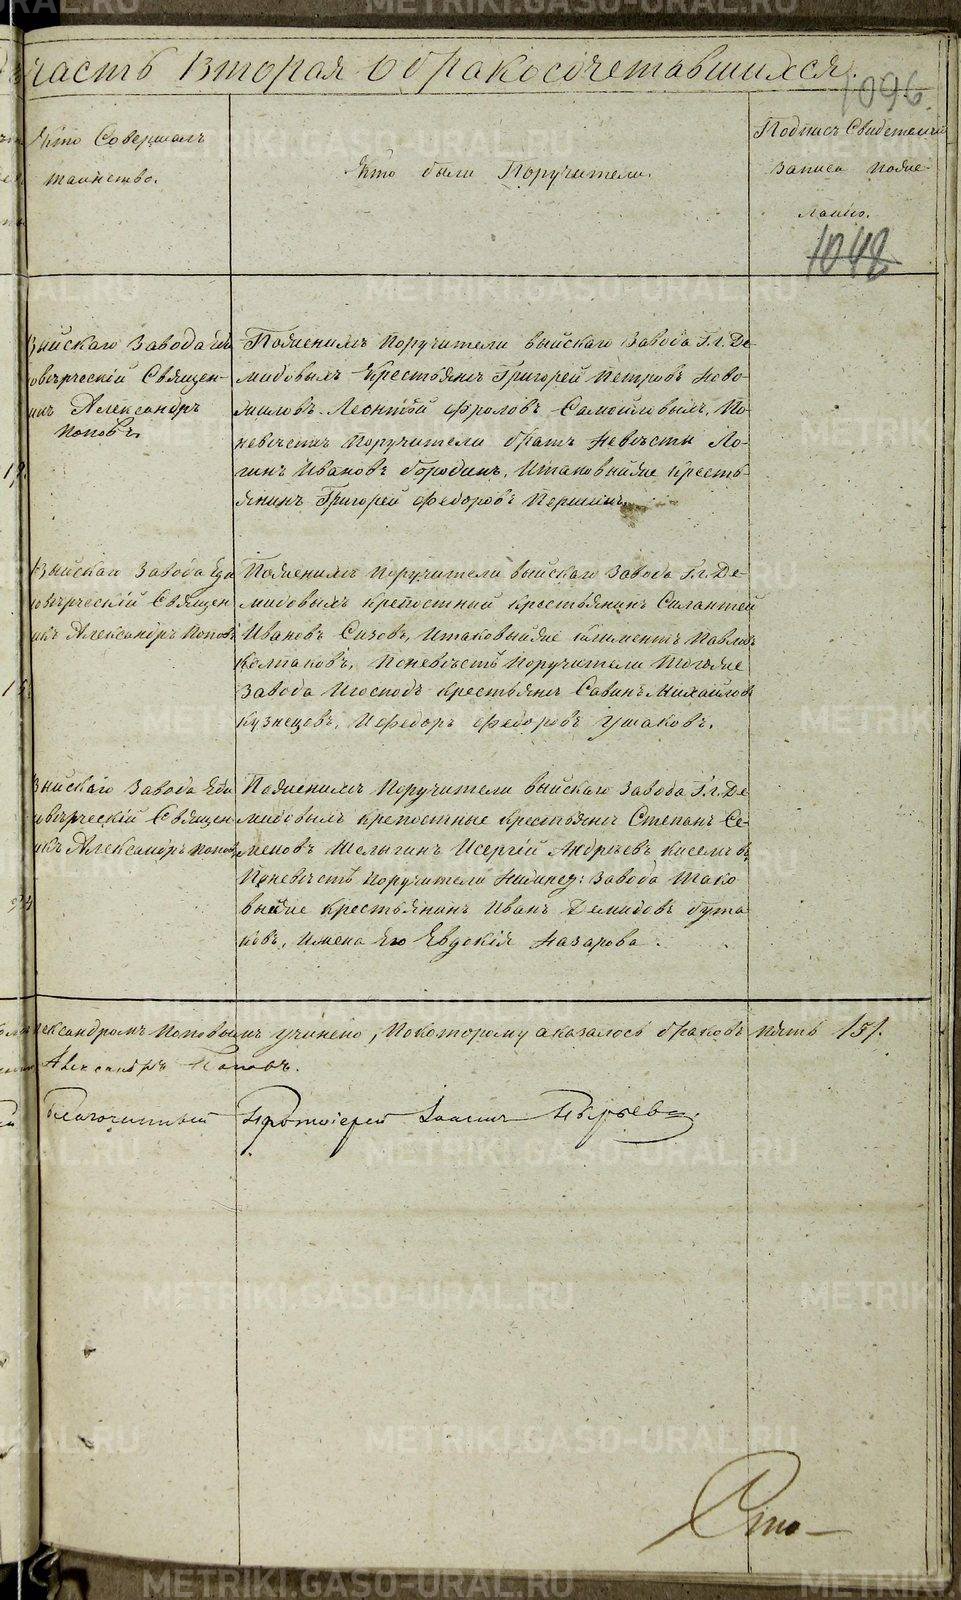 часть вторая о бракосочетавшихся.
1096.
Кто Совершалъ
таинство.
Кто были Поручители.
Подпись Свидетелей
записи пожеланию.
1048
Выйскаго Завода Еди
новѣрческій Священ-
никъ Александръ
Поповъ
По женихѣ Поручители Выйскаго Завода Гг. Де
мидовыхъ Крестьяне Григорей Петровъ Ново
жиловъ Леонтій Фроловъ Самойловыхъ, По
невѣстѣ Поручители братъ невѣсты Ло-
гинъ Ивановъ бородинъ, И таковыйже Кресть-
янинъ Григорей Федоровъ Першинъ.
Выйскаго Завода Еди
новѣрческій Священ
никъ Александръ Поповъ
По женихѣ Поручители Выйскаго Завода Гг. Де-
мидовыхъ крепостный крестьянинъ Силантей
Ивановъ Сизовъ, И таковыйже Климентъ Павловъ
Колпаковъ, По невѣстѣ Поручители Тогоже
Завода И господъ крестьяне Савинъ Михайловъ
Кузнецовъ, И Федоръ Федоровъ Ушаковъ.
Выйскаго Завода Еди
новѣрческій Священ
никъ Александръ Поповъ
По женихѣ Поручители Выйскаго Завода Гг. Де
мидовыхъ крепостные крестьяне Степанъ Се-
меновъ Шелыгинъ И Сергѣй Андрѣевъ Киселевъ,
По невѣстѣ Поручители Завода Тако
выйже крестьянинъ Иванъ Демидовъ бута
ковъ, И жена Его Евдокія Назарова.
Александромъ Поповымъ учинено, По которому оказалось браковъ пять /5/.
Александръ Поповъ.
Благочинный Протоіерей Іоаннъ Пырьевъ.
METRIKI.GASO-URAL.RU